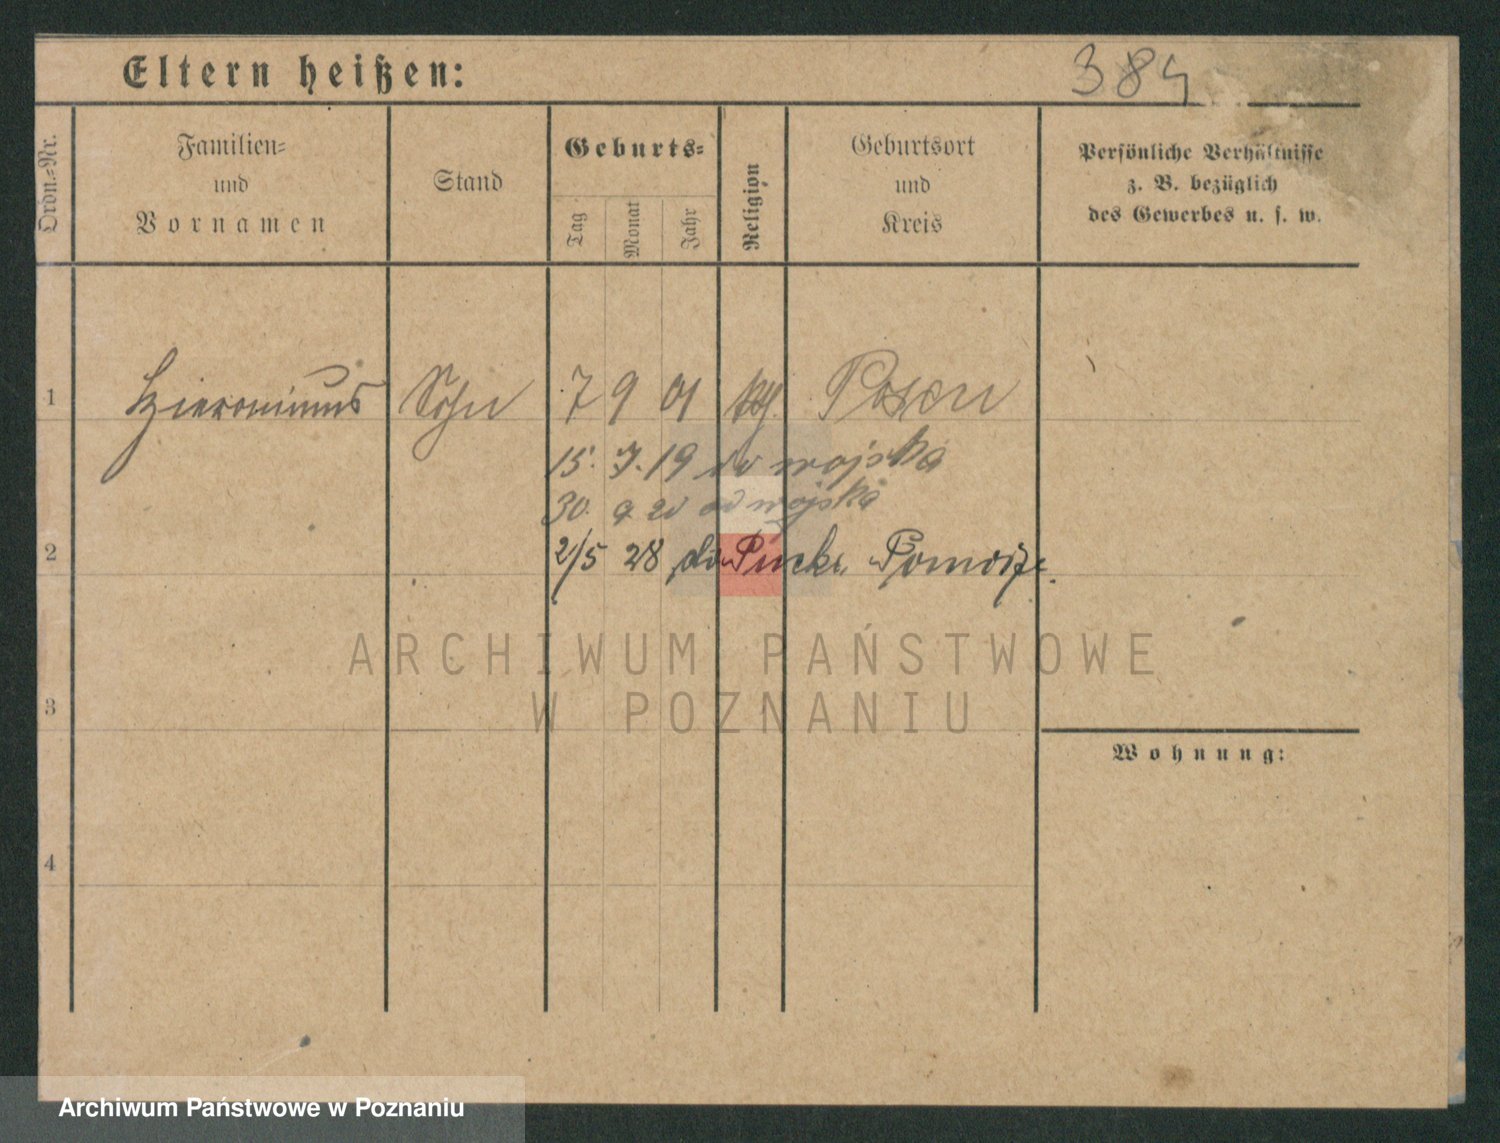 Eltern heißen:
384
Ordn.-Nr.
Familien-
und
Vornamen
Stand
Geburts-
Tag
Monat
Jahr
Religion
Geburtsort
und
Kreis
Persönliche Verhältnisse
z. B. bezüglich
des Gewerbes u. s. w.
1 Hieronimus Sohn 7 9 01 kth. Posen
15. 7. 19 do wojska
30. 9 20 od wojska
2
2/5 28 do Pucka, Pomorze.
ARCHIWUM PAŃSTWOWE
W POZNANIU
3
Wohnung:
4
Archiwum Państwowe w Poznaniu